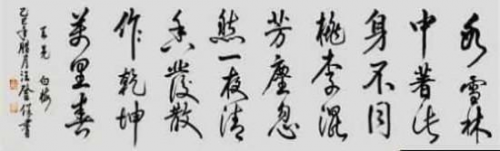 冰雪林
中著此
身不同
桃李混
芳塵忽
然一夜清
香發散
作乾坤
萬里春
王冕 白梅